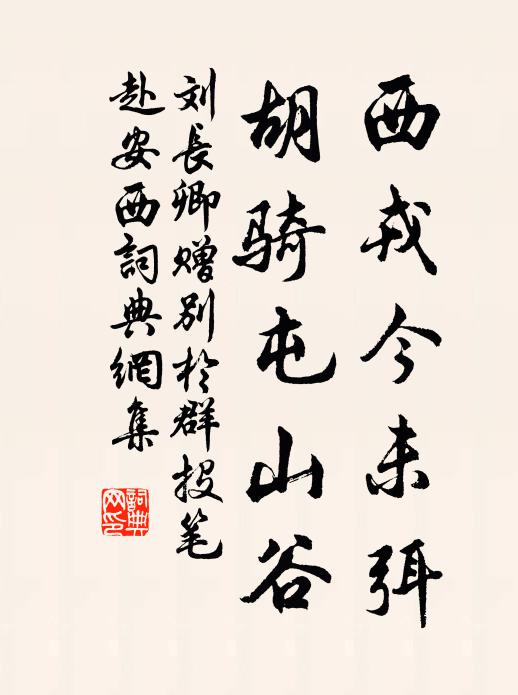 西戎今未弭
胡骑屯山谷
刘長卿赠别於群投笔
赴安西詞典網集
詞典
网印